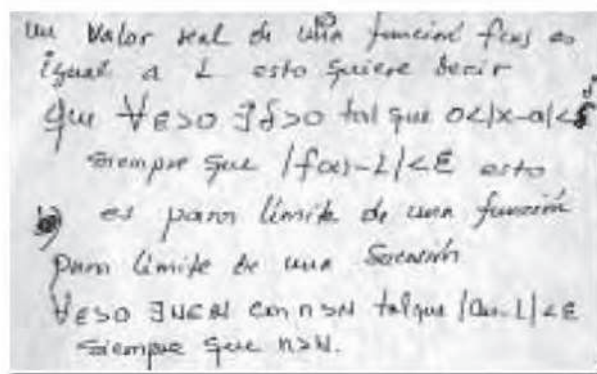 un valor real de una funcion f(x) es
igual a L esto quiere decir
que ∀ε>0 ∃δ>0 tal que 0<|x-a|<δ
siempre que |f(x)-L|<ε esto
es para límite de una función
para límite de una Sucesión
∀ε>0 ∃N∈ℕ con n>N tal que |an-L|<ε
siempre que n>N.